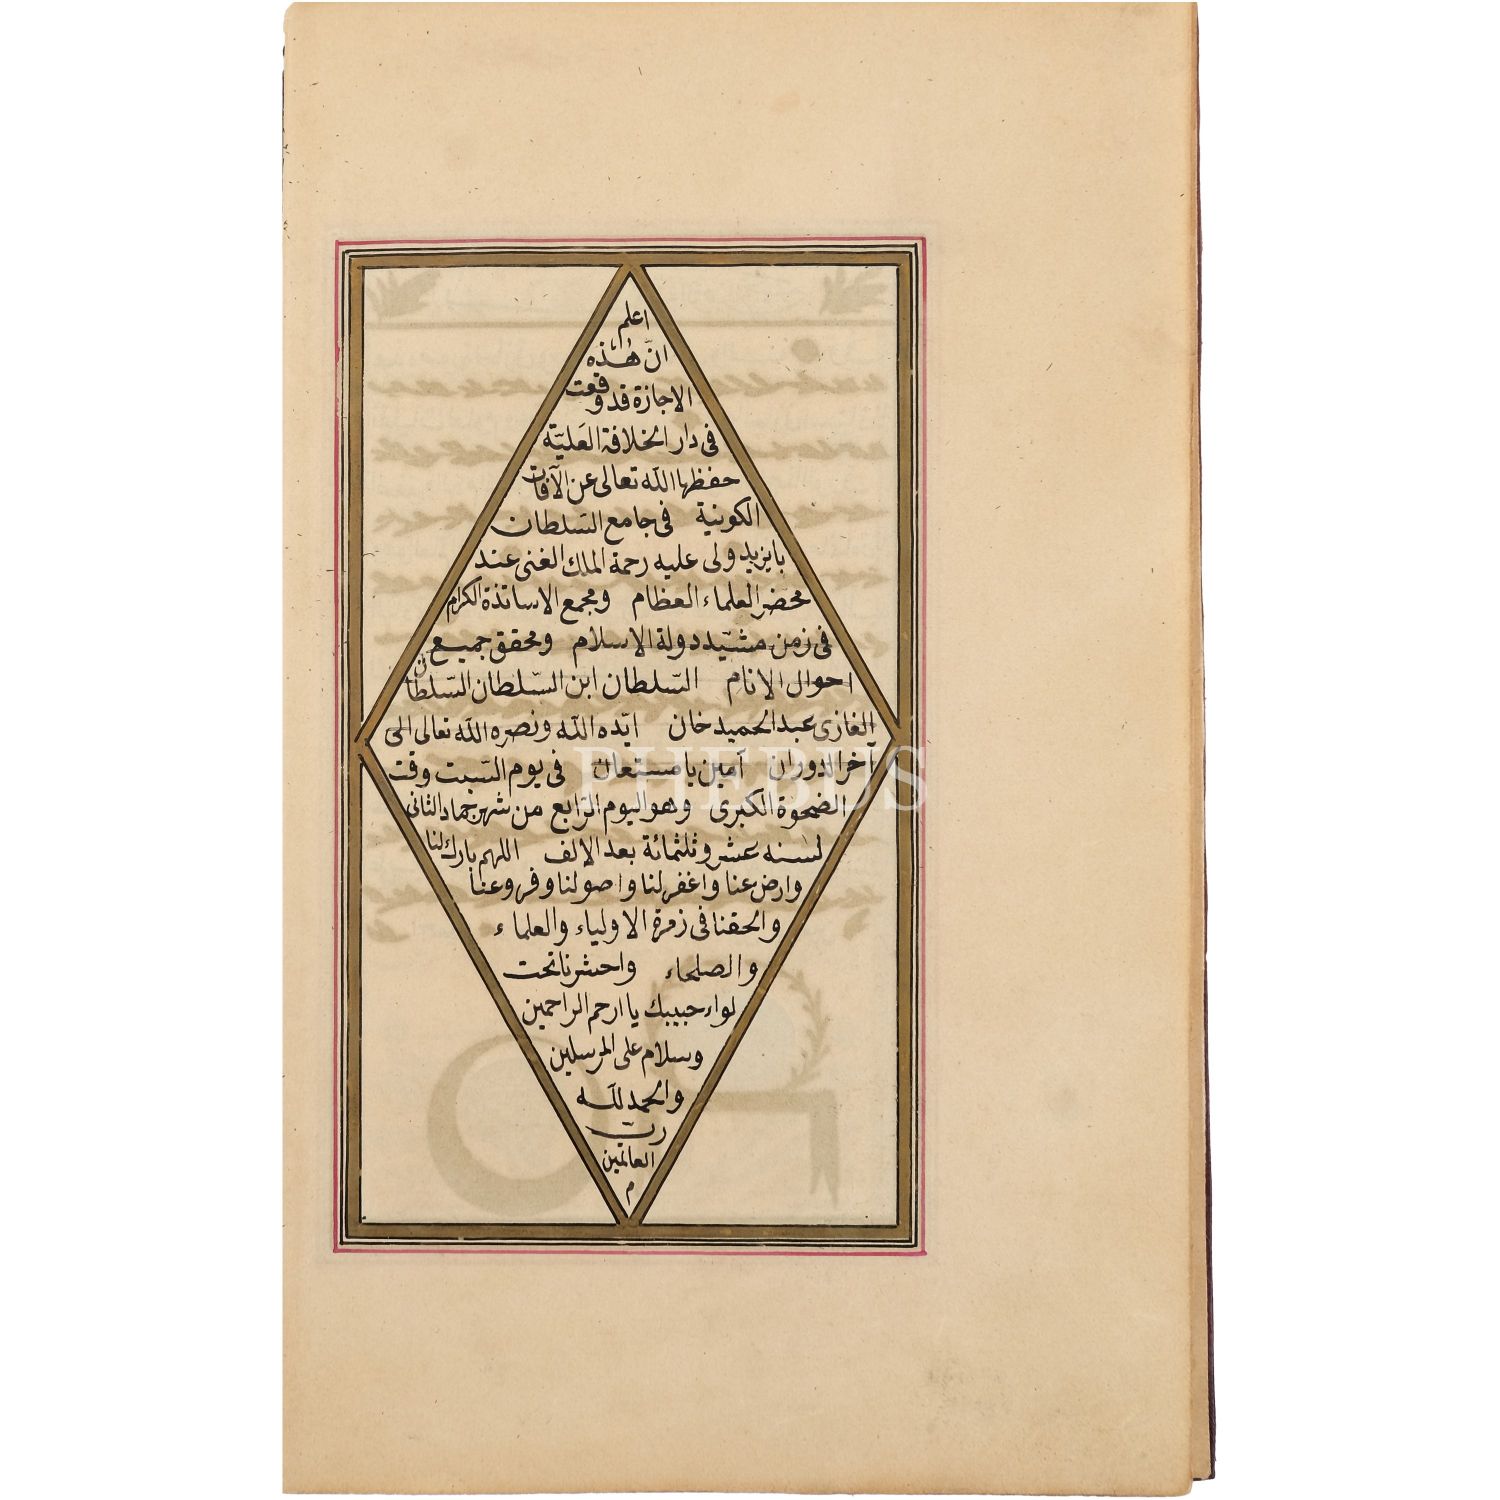 اعلم
انّ هٰذه
الاجازة قد وقعت
فى دار الخلافة العَليّة
حفظها الله تعالى عن الآفات
الكونية فى جامع السّلطان
بايزيد ولى عليه رحمة الملك الغنى عند
محضر العلماء العظام ومجمع الاساتذة الكرام
فى زمن مشيّد دولة الاسلام ومحقق جميع
احوال الانام السّلطان ابن السّلطان السّلطان
الغازى عبد الحميد خان ايّده الله ونصره الله تعالى الى
آخر الدوران آمين يا مستعان فى يوم السّبت وقت
الضحوة الكبرى وهو اليوم الرّابع من شهر جماد الثانى
لسنه عشر وثلثمائة بعد الالف اللهم بارك لنا
وارض عنا واغفر لنا واصولنا وفروعنا
والحقنا فى زمرة الاولياء والعلماء
والصلحاء واحشرنا تحت
لواء حبيبك يا ارحم الراحمين
وسلام على المرسلين
والحمد لله
ربّ
العالمين
م
PHEBUS